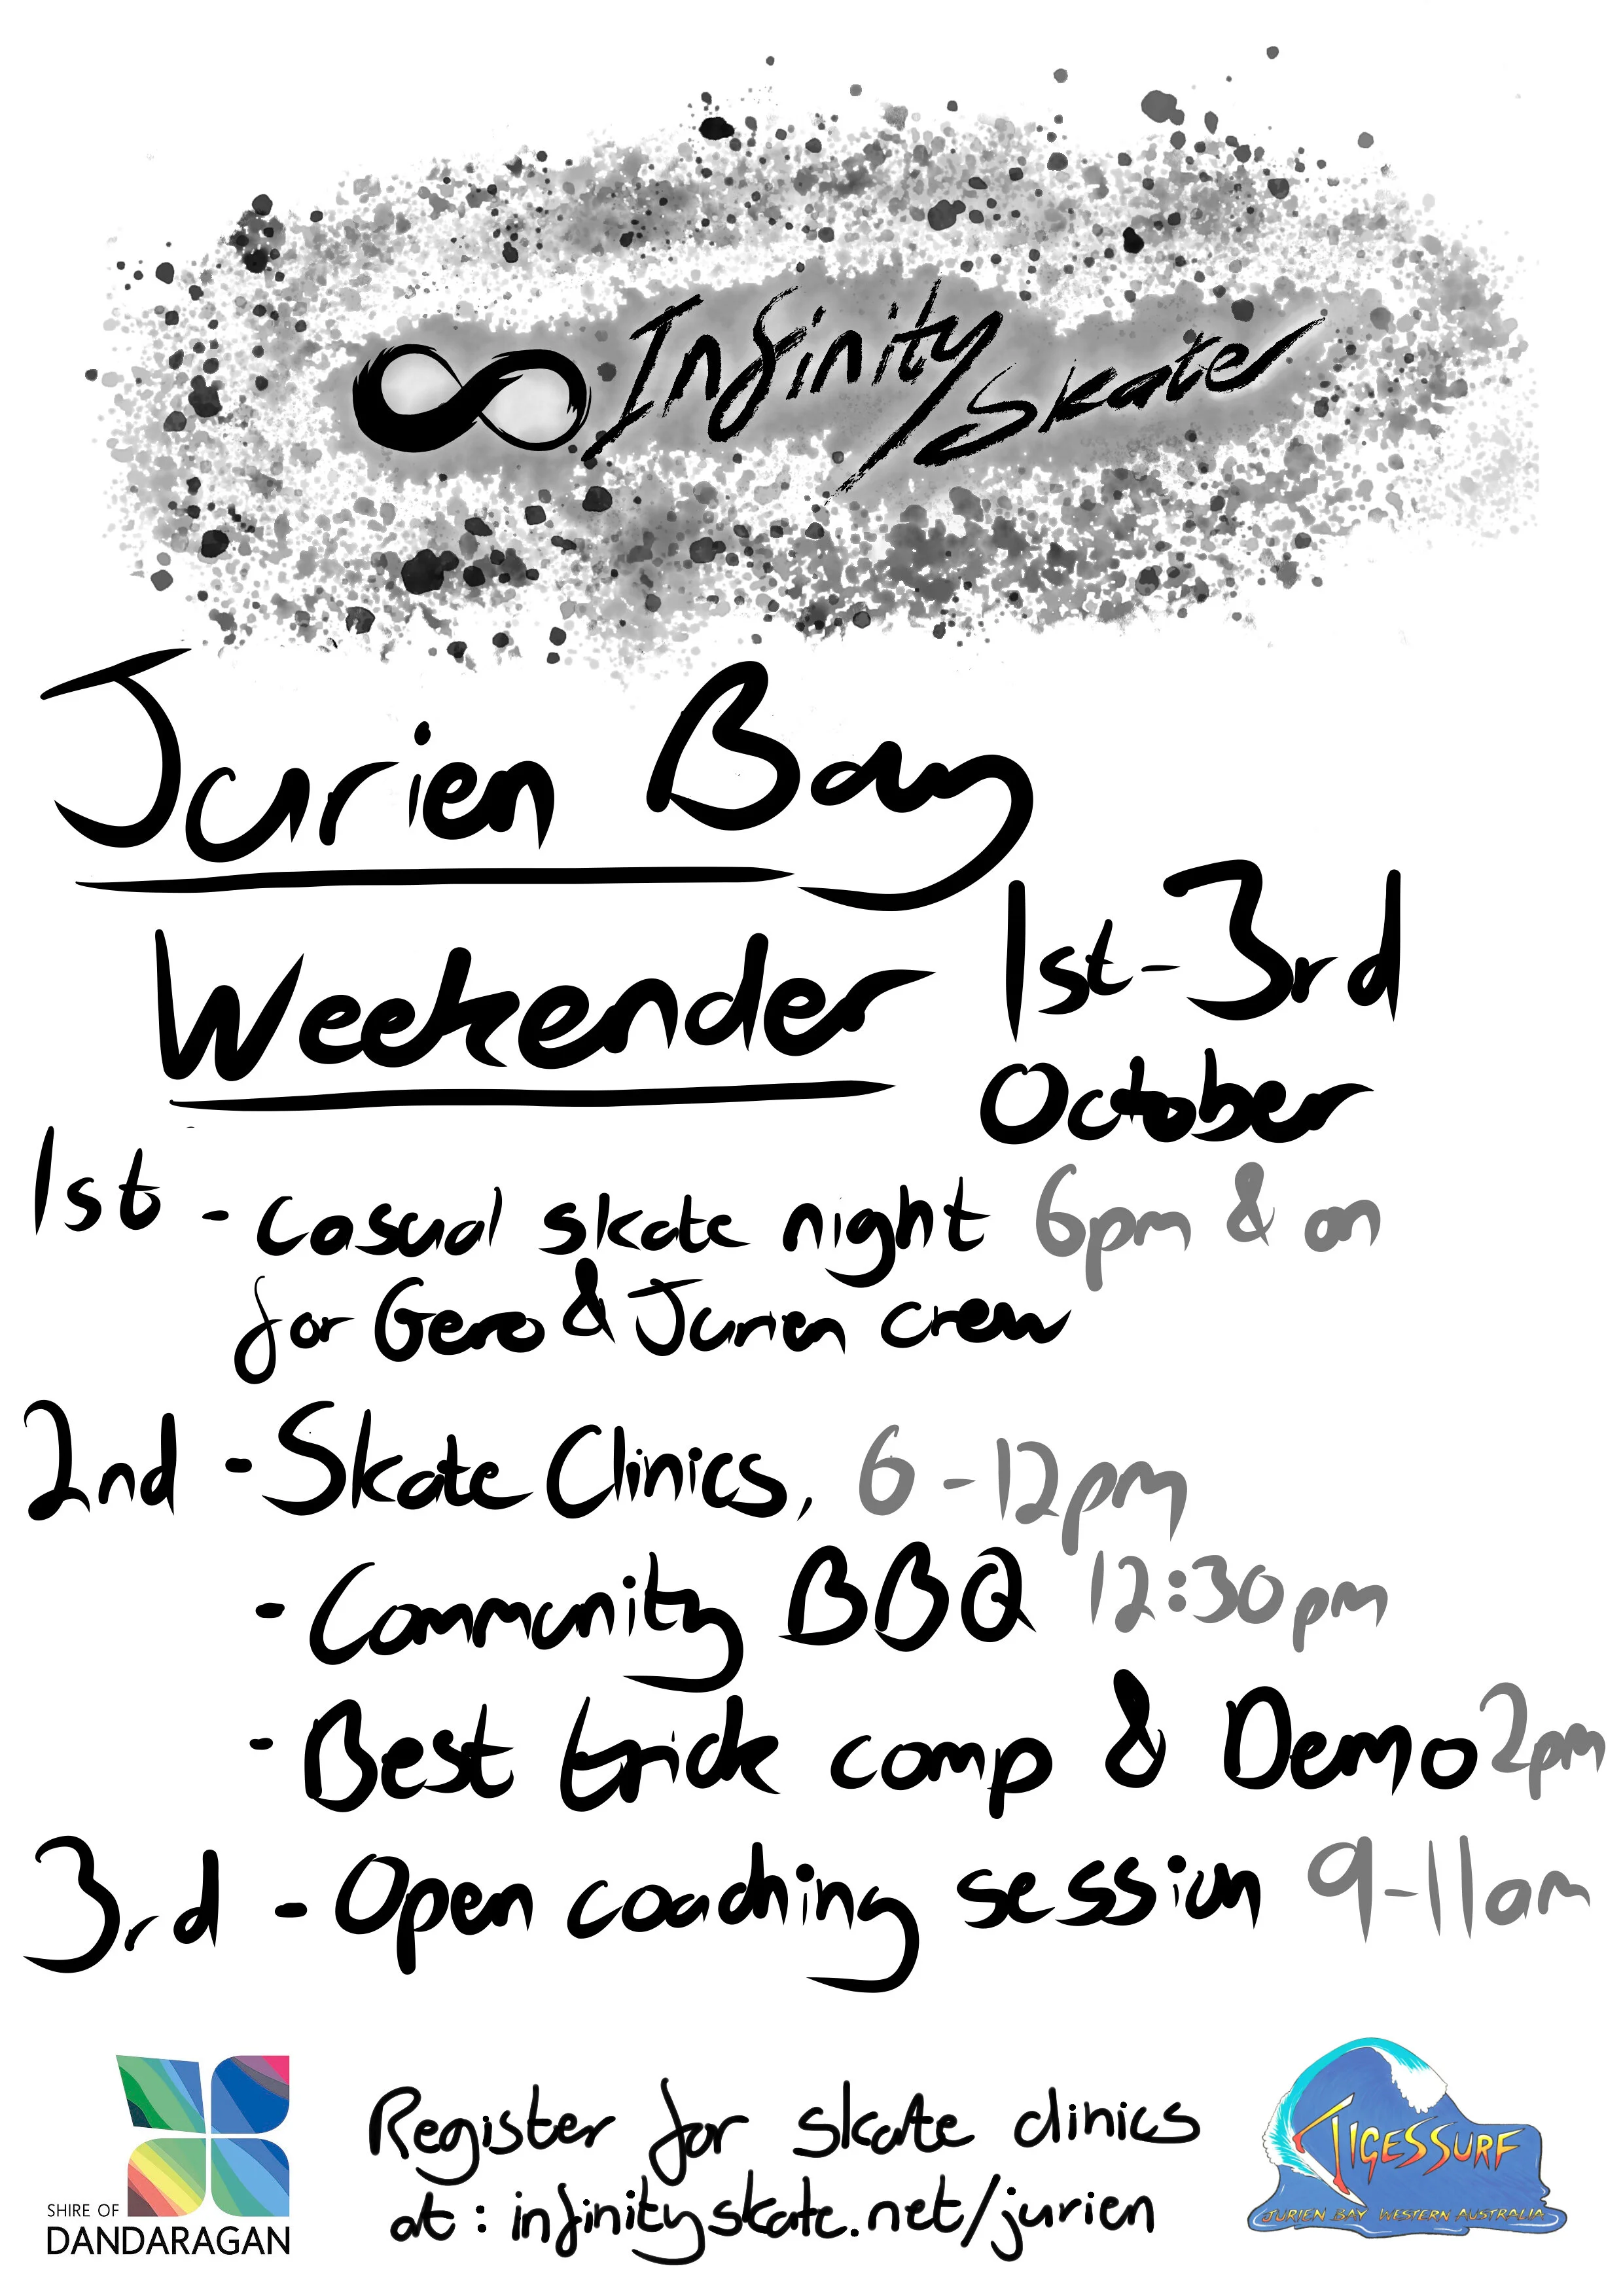 Infinity Skate
Jurien Bay
Weekender
1st-3rd
October
1st - Casual skate night 6pm & on
for Gero & Jurien crew
2nd - Skate Clinics, 6-12pm
- Community BBQ 12:30pm
- Best trick comp & Demo 2pm
3rd - Open coaching session 9-11am
Register for skate clinics
at: infinityskate.net/jurien
SHIRE OF
DANDARAGAN
TIGESSURF
JURIEN BAY WESTERN AUSTRALIA